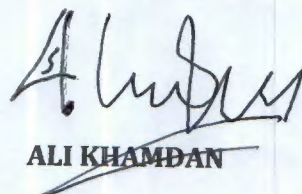 ALI KHAMDAN